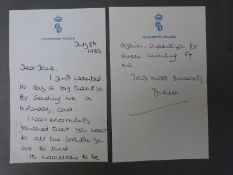 KENSINGTON PALACE
July 8th
Dear
I just wanted
to say a big thank you
for sending me a
birthday card.
I was enormously
touched that you went
to all the trouble you
are so kind.
It was lovely to be
KENSINGTON PALACE
again. Thank you for
even thinking of
me.
Yours most sincerely
Diana